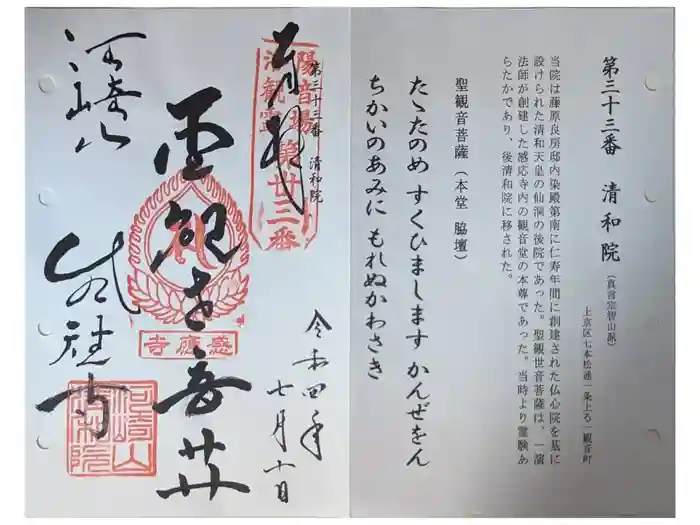 第三十三番 清和院
(真言宗智山派)
上京区七本松通一条上る一観音町
当院は藤原良房邸内染殿第南に仁寿年間に創建された仏心院を基に
設けられた清和天皇の仙洞の後院であった。聖観世音菩薩は、一演
法師が創建した感応寺内の観音堂の本尊であった。当時より霊験あ
らたかであり、後清和院に移された。
聖観音菩薩(本堂 脇壇)
たゝたのめ すくひまします かんぜをん
ちかいのあみに もれぬかわさき
奉拝
第三十三番 清和院
洛陽
観音霊場
第卅三番
令和四年
七月十日
聖観世音菩薩
感應寺
河崎山
感応寺
河崎山
清和院